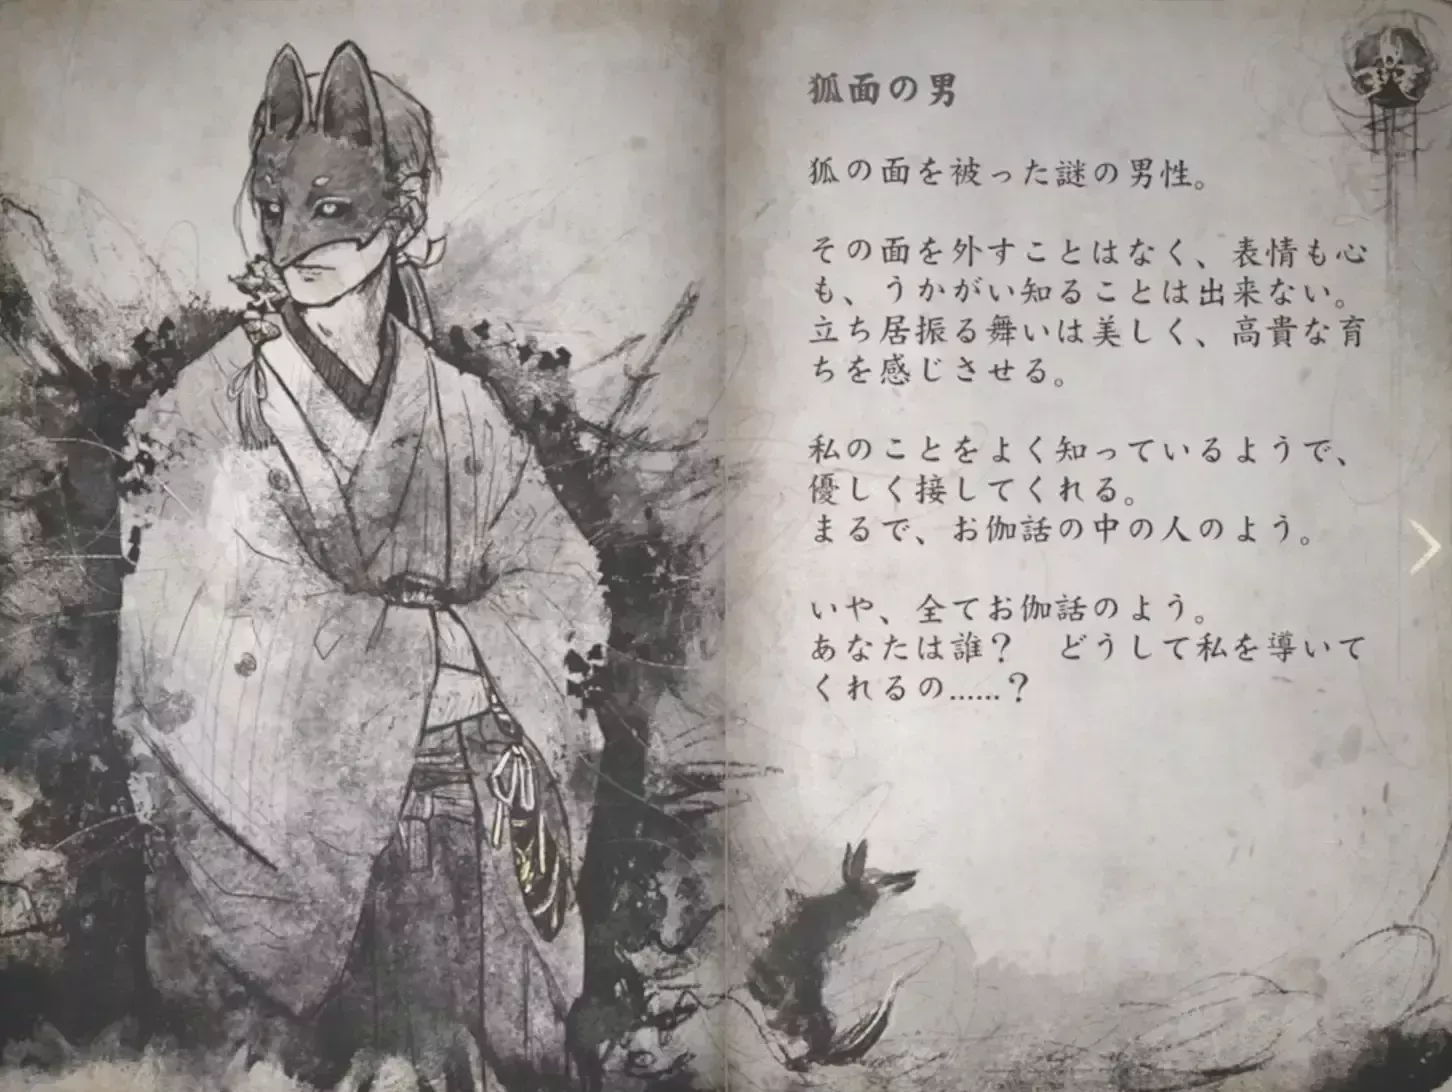 狐面の男
狐の面を被った謎の男性。
その面を外すことはなく、表情も心
も、うかがい知ることは出来ない。
立ち居振る舞いは美しく、高貴な育
ちを感じさせる。
私のことをよく知っているようで、
優しく接してくれる。
まるで、お伽話の中の人のよう。
いや、全てお伽話のよう。
あなたは誰？　どうして私を導いて
くれるの……？